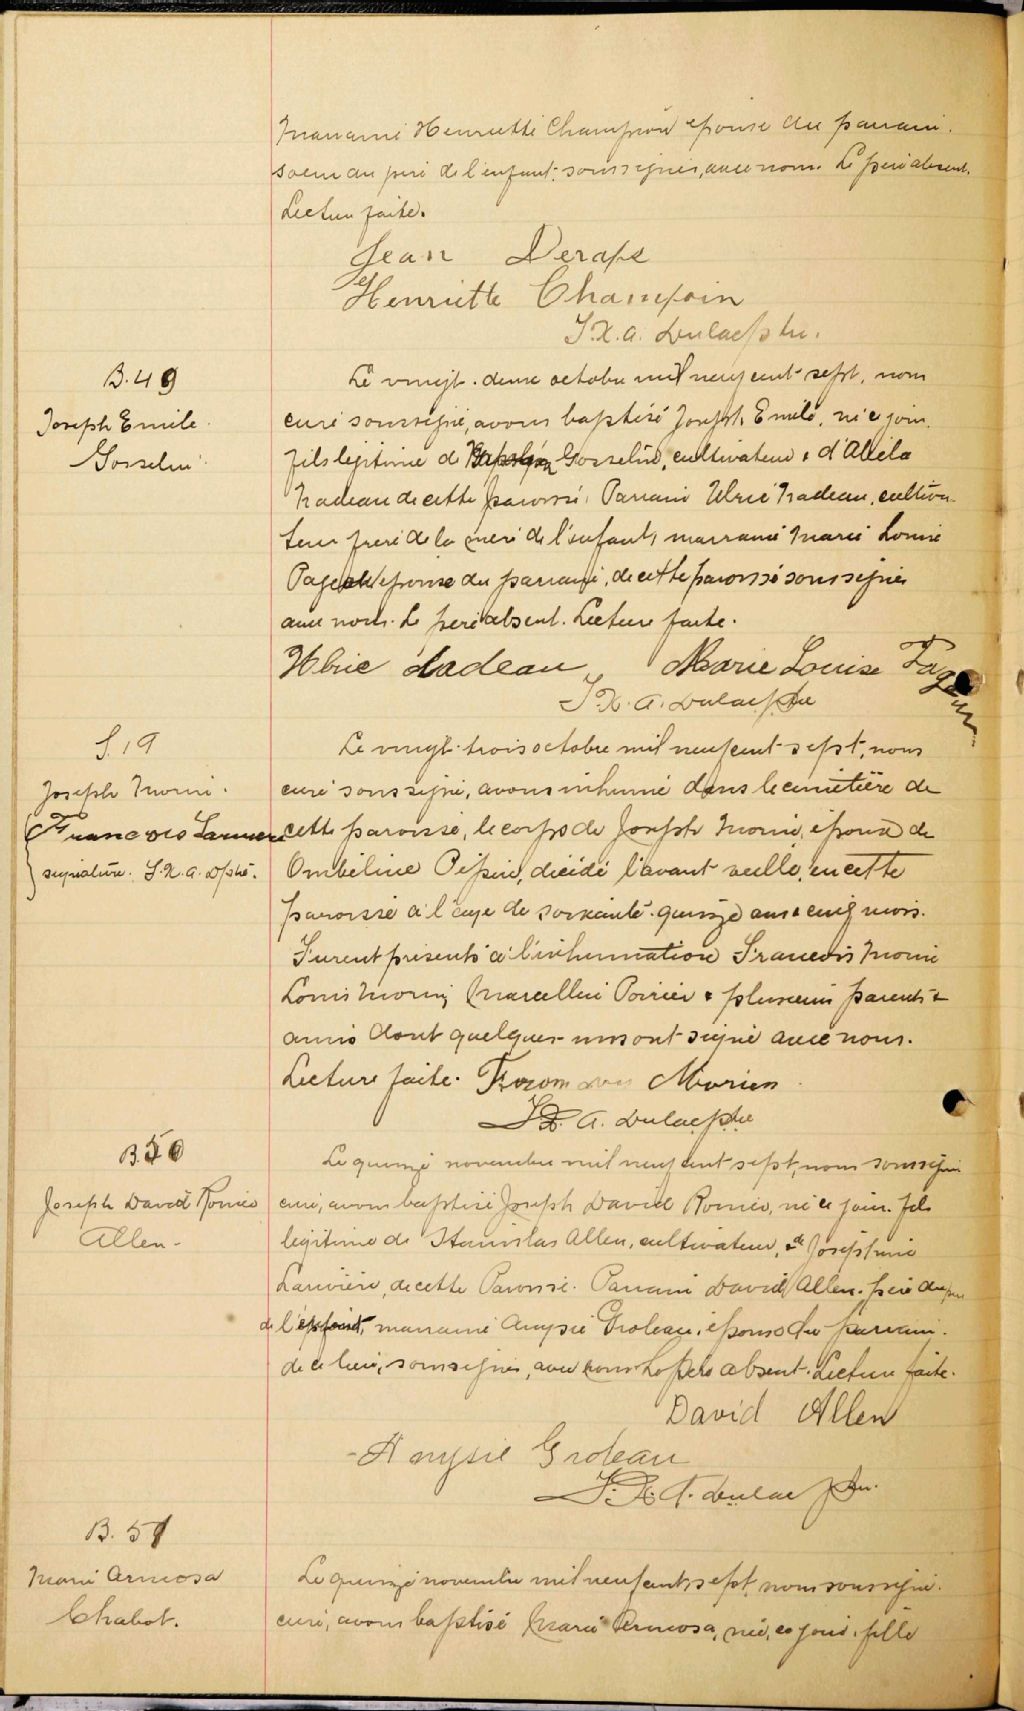 marraine Henriette Champoin épouse du parrain.
soeur du père de l'enfant, soussignés, avec nous. Le père absent.
Lecture faite.
Jean Deraps
Henriette Champoin
F.X.A. Dulac ptre.
B. 49
Joseph Emile
Gosselin
Le vingt-deux octobre mil neuf cent sept, nous
curé soussigné, avons baptisé Joseph Emile, né ce jour,
fils légitime de Gosselin, cultivateur & d'Aliéla
Nadeau de cette paroisse, Parrain Ulric Nadeau, cultiva-
teur frère de la mère de l'enfant, marraine Marie Louise
Pageau épouse du parrain, de cette paroisse soussignés
avec nous. Le père absent. Lecture faite.
Ulric Nadeau Marie Louise Pageau
F.X.A. Dulac ptre
S. 19
Joseph Morin.
Francois Larivière
signature. F.X.A. D ptre.
Le vingt-trois octobre mil neuf cent sept, nous
curé soussigné, avons inhumé dans le cimetière de
cette paroisse, le corps de Joseph Morin, époux de
Ombéline Pépin, décédé l'avant veille, en cette
paroisse à l'age de soixante-quinze ans & cinq mois.
Furent présents à l'inhumation Francois Morin
Louis Morin, Marcellin Poirier & plusieurs parents &
amis dont quelques-uns ont signé avec nous.
Lecture faite. Morien
F.X.A. Dulac ptre
B. 50
Joseph David Roméo
Allen.
Le quinze novembre mil neuf cent sept, nous soussigné
curé, avons baptisé Joseph David Roméo, né ce jour. fils
légitime de Stanislas Allen, cultivateur, & de Joséphine
Larivière, de cette Paroisse. Parrain David Allen. père du père
de l'enfant, marraine Anysie Groleau, épouse du parrain.
de ce lieu, soussignés, avec nous. Le père absent. Lecture faite.
David Allen
Anysie Groleau
F.X.A. Dulac ptre.
B. 51
Marie Armosa
Chabot.
Le quinze novembre mil neuf cent sept nous soussigné.
curé, avons baptisé Marie Armosa, née, ce jour. fille